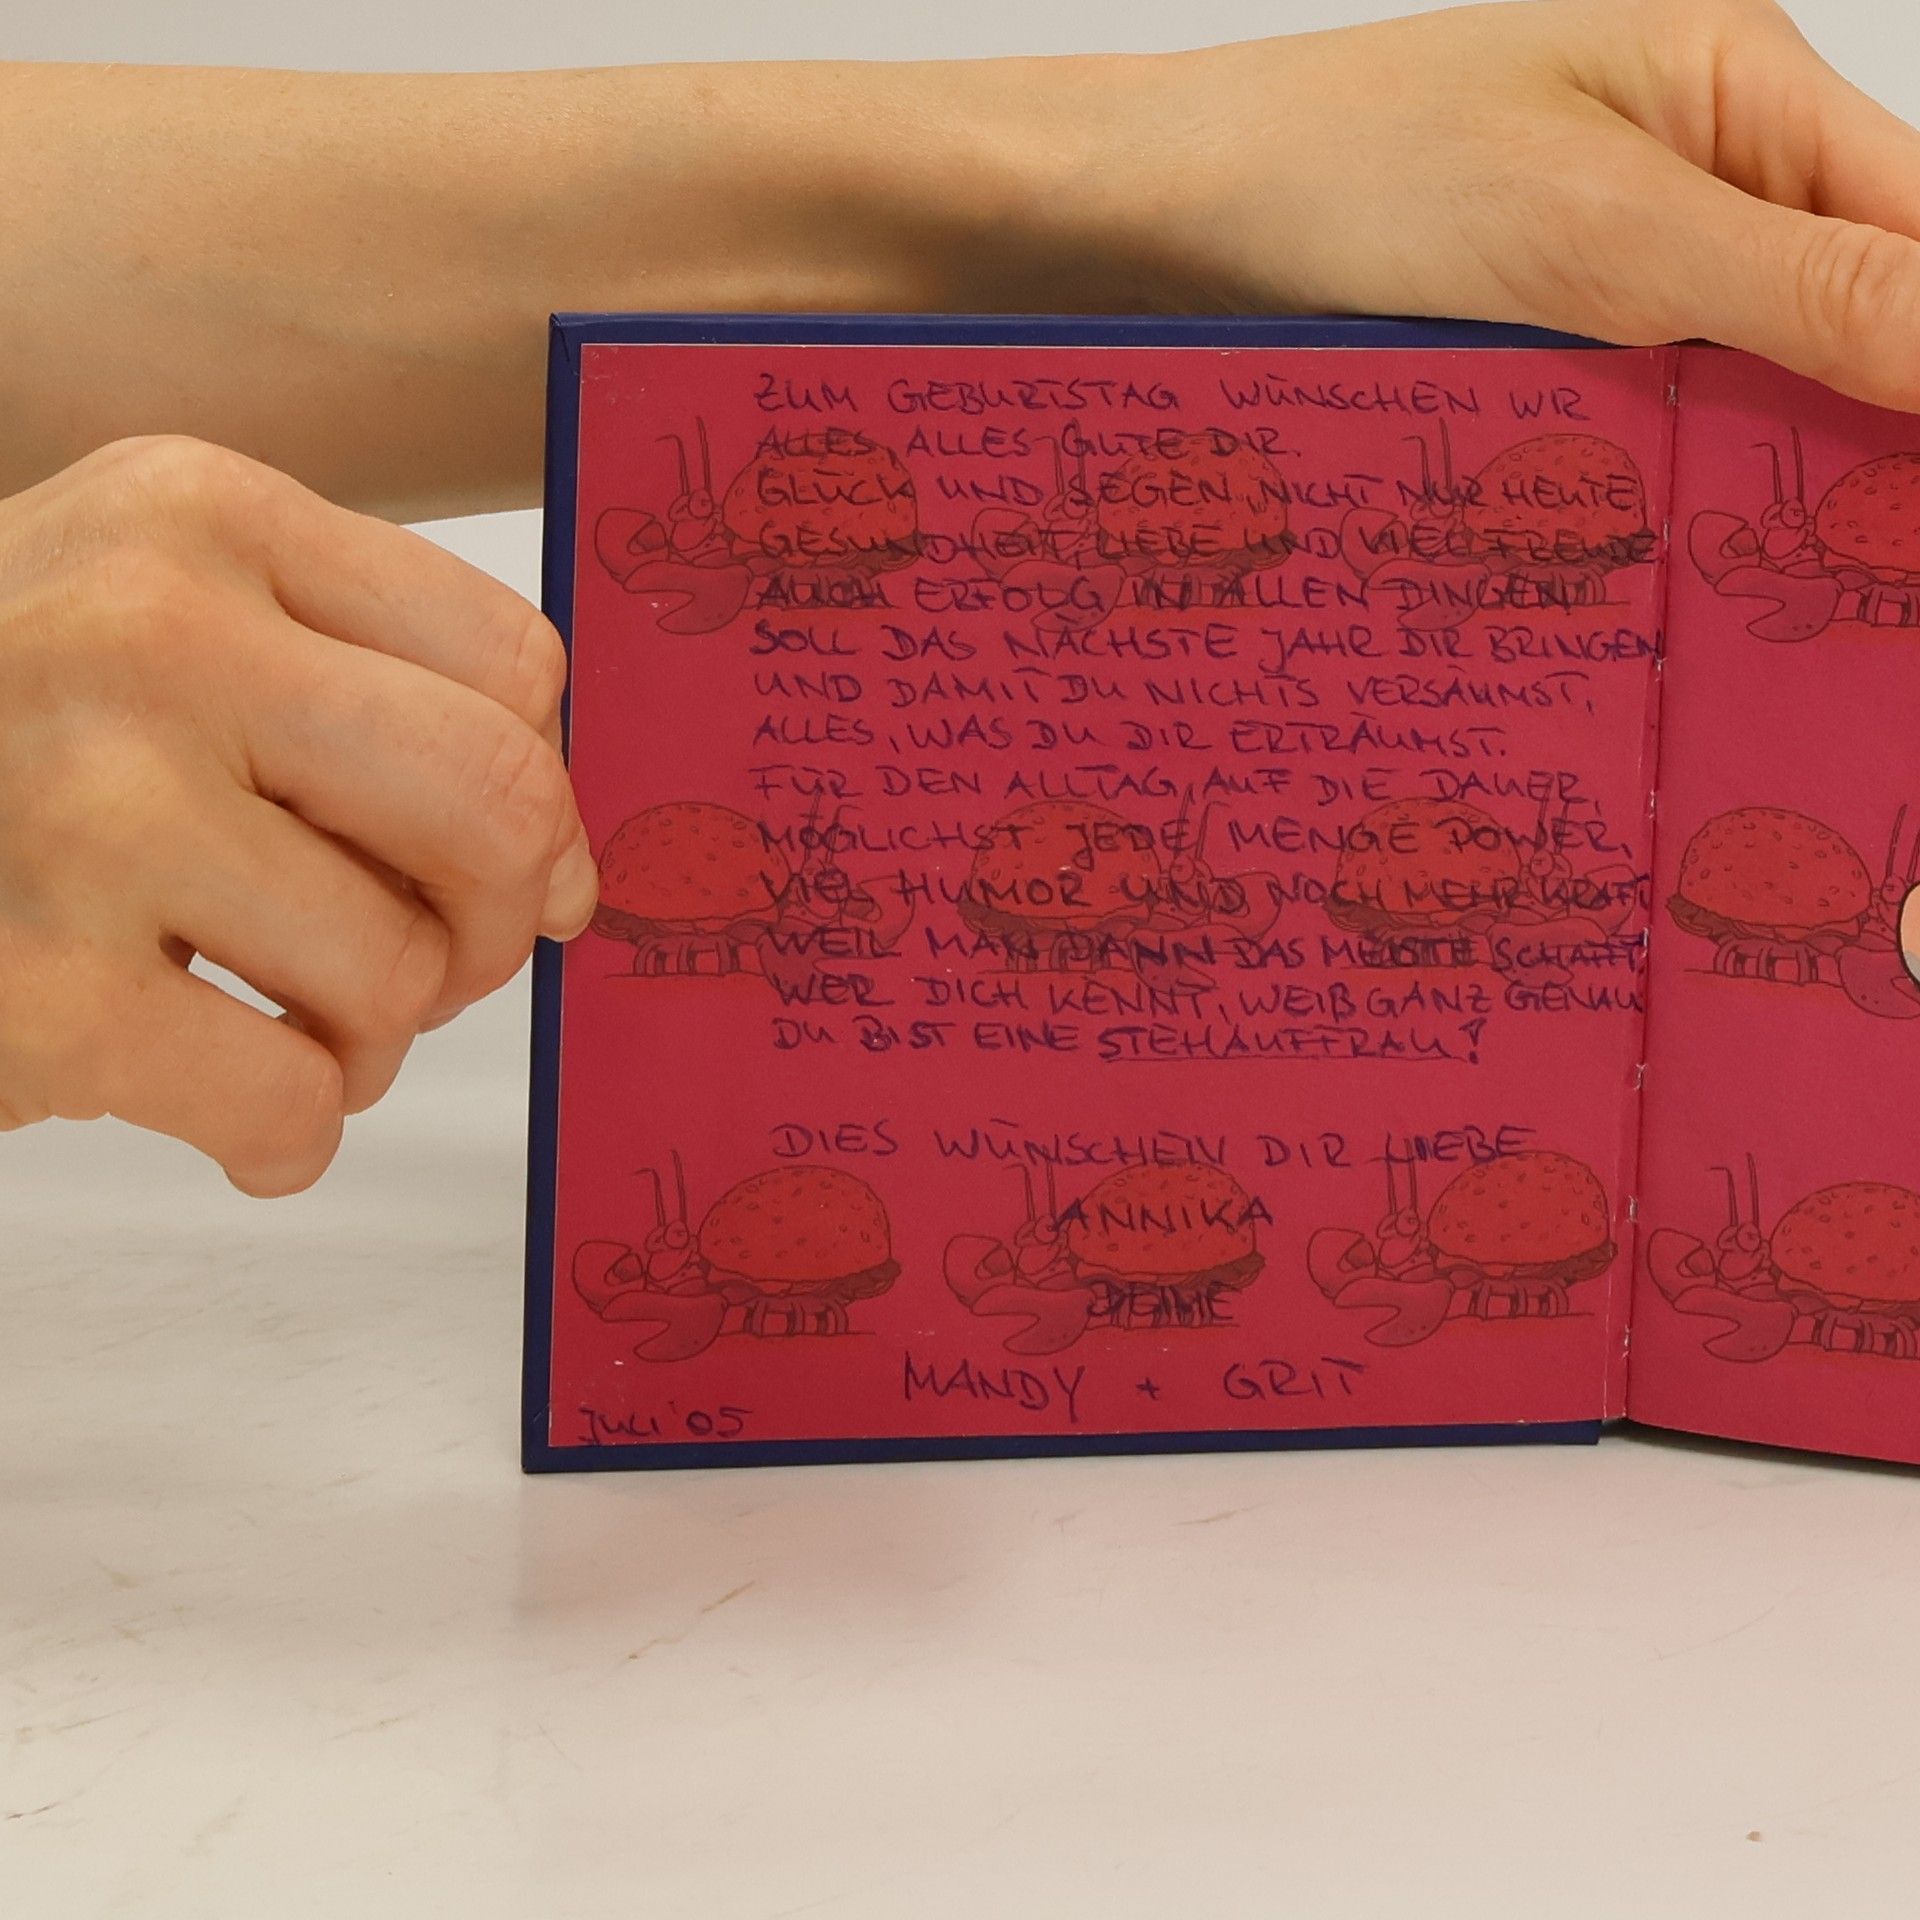 ZUM GEBURTSTAG WÜNSCHEN WIR
ALLES, ALLES GUTE DIR.
GLÜCK UND SEGEN, NICHT NUR HEUTE,
GESUNDHEIT, LIEBE UND VIEL FREUDE
AUCH ERFOLG IN ALLEN DINGEN
SOLL DAS NÄCHSTE JAHR DIR BRINGEN
UND DAMIT DU NICHTS VERSÄUMST,
ALLES, WAS DU DIR ERTRÄUMST.
FÜR DEN ALLTAG, AUF DIE DAUER,
MÖGLICHST JEDE MENGE POWER,
VIEL HUMOR UND NOCH MEHR KRAFT
WEIL MAN DANN DAS MEISTE SCHAFFT
WER DICH KENNT, WEIß GANZ GENAU
DU BIST EINE STEHAUFFRAU!
DIES WÜNSCHEN DIR LIEBE
ANNIKA
DEINE
MANDY + GRIT
JULI '05